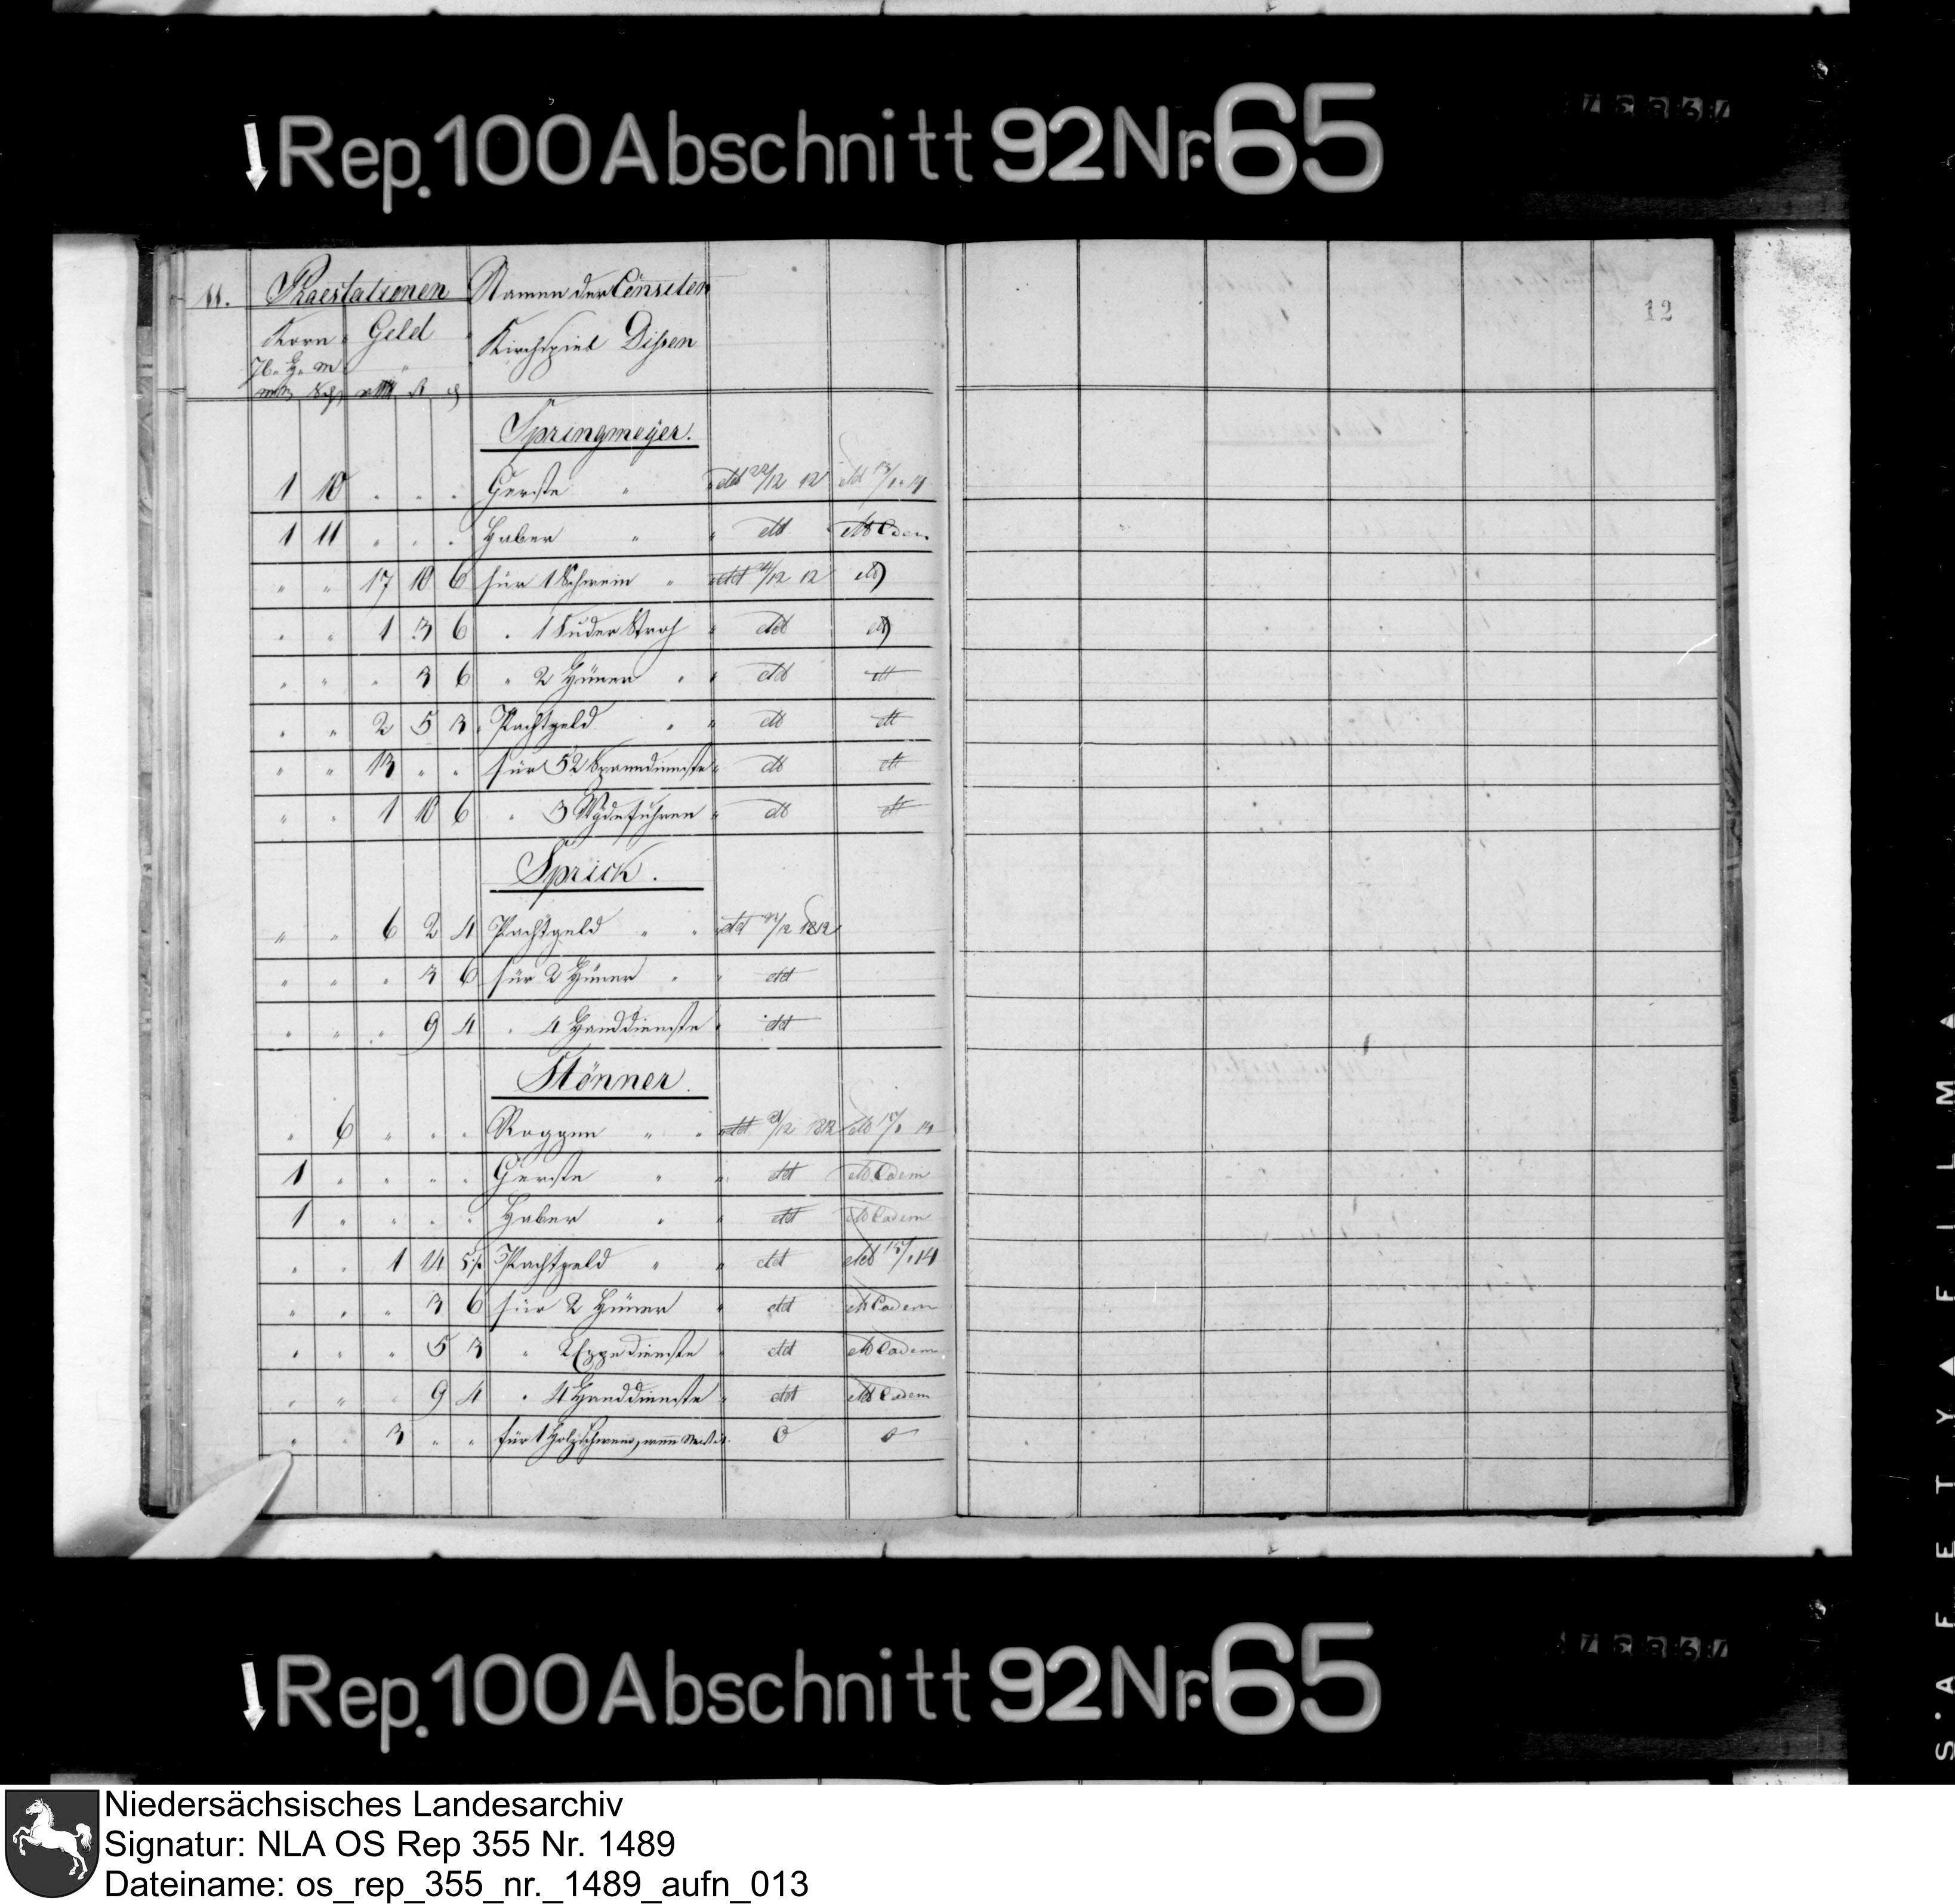 Rep. 100 Abschnitt 92 Nr. 65
11. Praestationen Namen der Censiten
Korn Geld Kirchspiel Dissen
12
Springmeyer.
1 10 . . . Gerste " dd 22/12 12
1 11 " . . Haber " " dt dt Eadem
" " 17 10 6 für 1 Schwein " 12 dt
" " 1 3 6 " 1 Fuder Stroh " dt dt
" " " 3 6 " 2 Hüner " " dt dt
" " 2 5 3 Pachtgeld " " dt dt
" " 13 " " für 52 Spanndienste " dt dt
" " 1 10 6 " 3 dt dt
Sprick.
" " 6 2 4 Pachtgeld " " 1812
" " " 3 6 für 2 Hüner " " dt
" " " 9 4 " 4 Handdienste " dt
Stönner.
" 6 " " " Roggen " " 1812
1 " " " " Gerste " " dt dt Eadem
1 " " " " Haber " " dt dt Eadem
" " 1 14 Pachtgeld " " dt
" " " 3 6 für 2 Hüner " dt dt Eadem
" " " 5 3 " dt dt Eadem
" " " 9 4 " 4 Handdienste " dt dt Eadem
" " 3 " " für 1 Holzschwein, wenn Mast ist. 0 0
Rep. 100 Abschnitt 92 Nr. 65
SAFETY FILM
Niedersächsisches Landesarchiv
Signatur: NLA OS Rep 355 Nr. 1489
Dateiname: os_rep_355_nr._1489_aufn_013